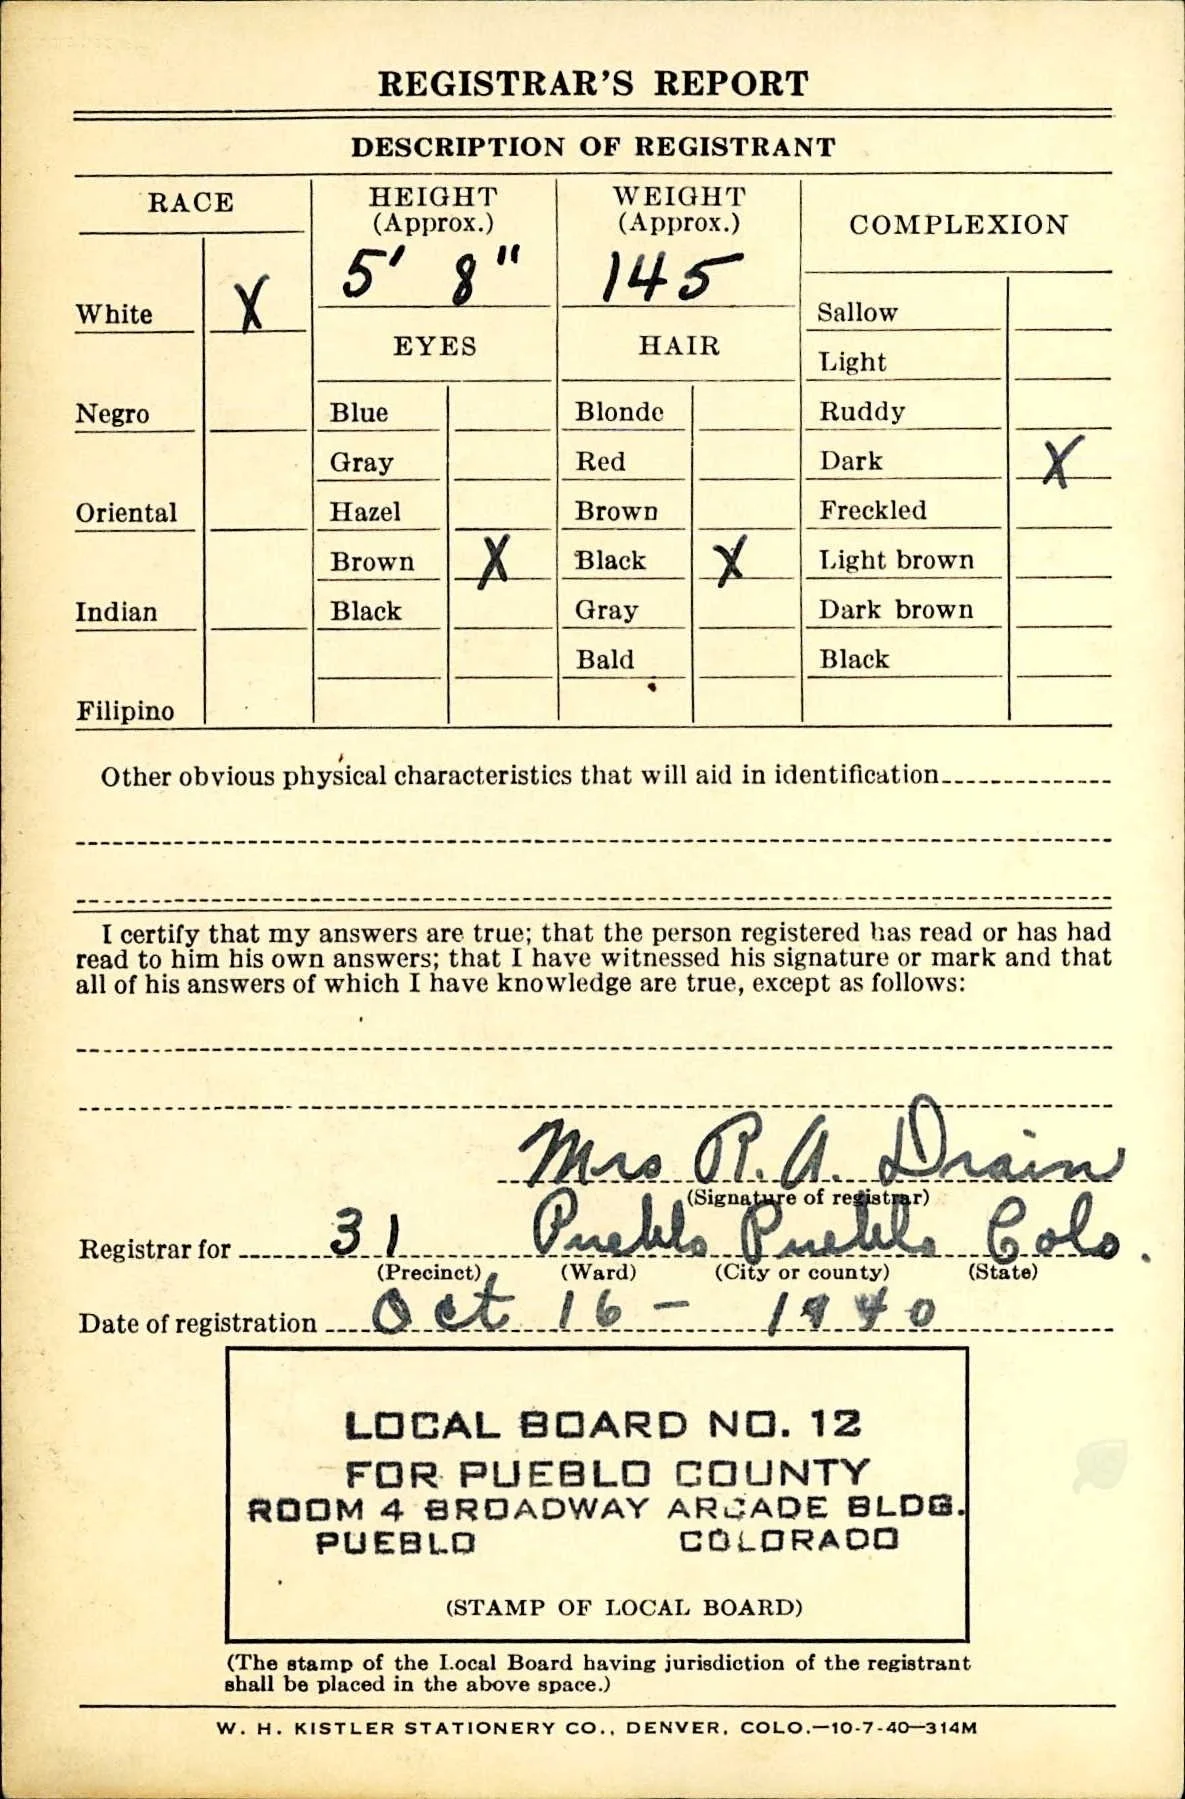 REGISTRAR'S REPORT
DESCRIPTION OF REGISTRANT
RACE
HEIGHT
(Approx.)
WEIGHT
(Approx.)
COMPLEXION
5' 8"
145
White X
Sallow
EYES
HAIR
Light
Negro
Blue
Blonde
Ruddy
Gray
Red
Dark X
Oriental
Hazel
Brown
Freckled
Brown X
Black X
Light brown
Indian
Black
Gray
Dark brown
Bald
Black
Filipino
Other obvious physical characteristics that will aid in identification
I certify that my answers are true; that the person registered has read or has had
read to him his own answers; that I have witnessed his signature or mark and that
all of his answers of which I have knowledge are true, except as follows:
Mrs R. A. Drain
(Signature of registrar)
Registrar for 31 Pueblo Pueblo Colo.
(Precinct) (Ward) (City or county) (State)
Date of registration Oct 16 - 1940
LOCAL BOARD NO. 12
FOR PUEBLO COUNTY
ROOM 4 BROADWAY ARCADE BLDG.
PUEBLO COLORADO
(STAMP OF LOCAL BOARD)
(The stamp of the Local Board having jurisdiction of the registrant
shall be placed in the above space.)
W. H. KISTLER STATIONERY CO., DENVER, COLO.—10-7-40—314M